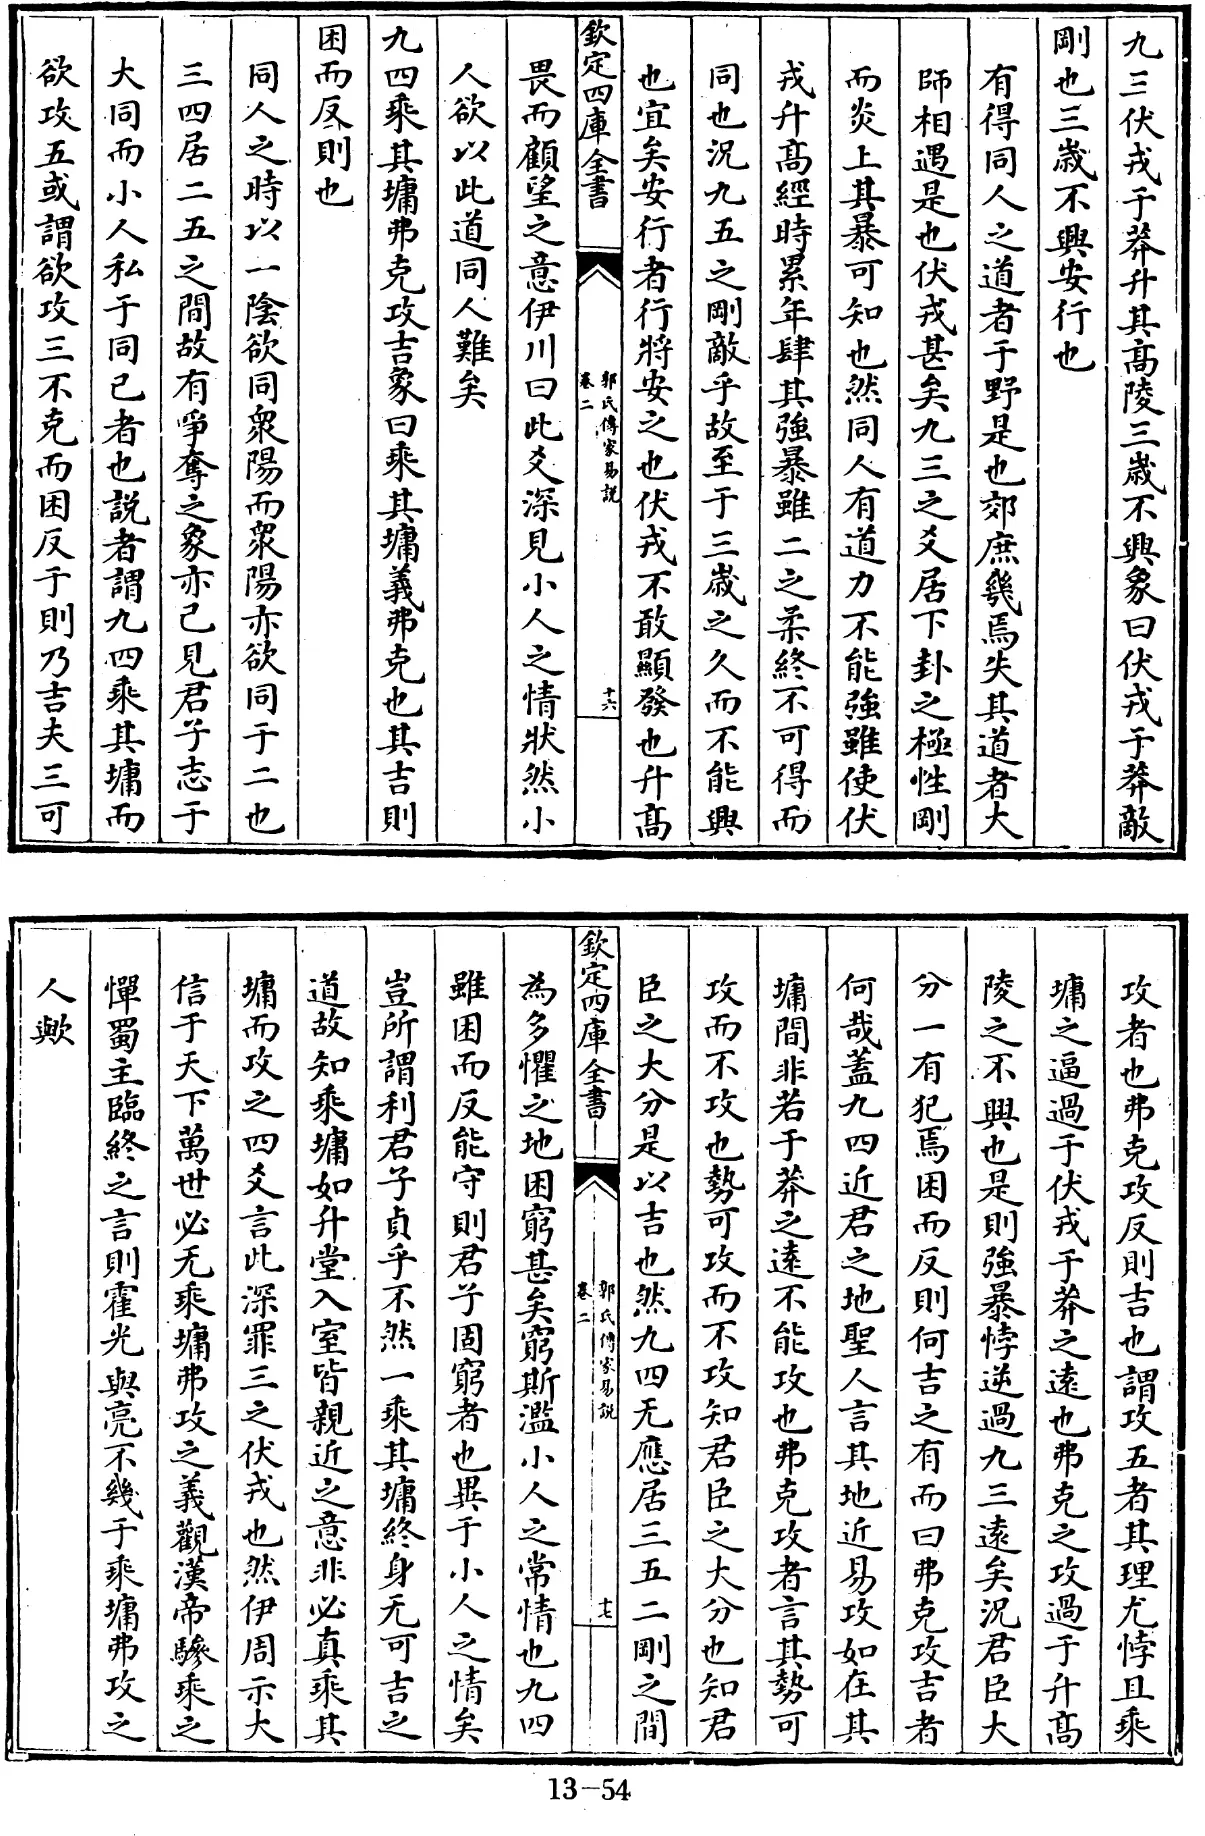 九三伏戎于莽升其高陵三歲不興象曰伏戎于莽敵
剛也三歲不興安行也
有得同人之道者于野是也郊庶幾焉失其道者大
師相遇是也伏戎甚矣九三之爻居下卦之極性剛
而炎上其暴可知也然同人有道力不能強雖使伏
戎升高經時累年肆其強暴雖二之柔終不可得而
同也況九五之剛敵乎故至于三歲之久而不能興
也宜矣安行者行將安之也伏戎不敢顯發也升高
欽定四庫全書
郭氏傳家易說
卷二
十六
畏而顧望之意伊川曰此爻深見小人之情狀然小
人欲以此道同人難矣
九四乘其墉弗克攻吉象曰乘其墉義弗克也其吉則
困而反則也
同人之時以一陰欲同衆陽而衆陽亦欲同于二也
三四居二五之間故有爭奪之象亦已見君子志于
大同而小人私于同己者也說者謂九四乘其墉而
欲攻五或謂欲攻三不克而困反于則乃吉夫三可
攻者也弗克攻反則吉也謂攻五者其理尤悖且乘
墉之逼過于伏戎于莽之遠也弗克之攻過于升高
陵之不興也是則強暴悖逆過九三遠矣況君臣大
分一有犯焉困而反則何吉之有而曰弗克攻吉者
何哉蓋九四近君之地聖人言其地近易攻如在其
墉間非若于莽之遠不能攻也弗克攻者言其勢可
攻而不攻也勢可攻而不攻知君臣之大分也知君
臣之大分是以吉也然九四无應居三五二剛之間
欽定四庫全書
郭氏傳家易說
卷二
十七
為多懼之地困窮甚矣窮斯濫小人之常情也九四
雖困而反能守則君子固窮者也異于小人之情矣
豈所謂利君子貞乎不然一乘其墉終身无可吉之
道故知乘墉如升堂入室皆親近之意非必真乘其
墉而攻之四爻言此深罪三之伏戎也然伊周示大
信于天下萬世必无乘墉弗攻之義觀漢帝驂乘之
憚蜀主臨終之言則霍光與亮不幾于乘墉弗攻之
人歟
13-54